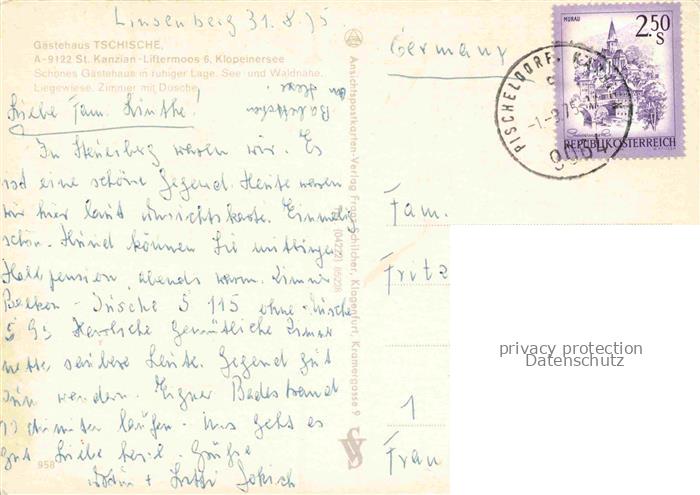 Linsenberg 31.8.75
Gästehaus TSCHISCHE,
A-9122 St. Kanzian - Liftermoos 6, Klopeinersee
Schönes Gästehaus in ruhiger Lage. See- und Waldnähe.
Liegewiese. Zimmer mit Dusche
Liebe Fam.
waren wir. Es
ist eine schöne Gegend. Heute waren
wir hier laut Ansichtskarte. Einmalig
schön. Hund können Sie mitbringen
Halbpension, abends warm. Zimmer
Balkon - Dusche S 115 ohne Dusche
S 95 Herrliche Gemütliche Zimmer
nette, saubere Leute. Gegend gut
zum wandern. Eigner Badestrand
Minuten laufen. Uns geht es
gut Liebe herzl. Grüße
958
Ansichtspostkarten-Verlag Franz Schilcher, Klagenfurt, Kramergasse 9
Tel. (04222) 85228
Germany
MURAU
2.50 S
REPUBLIK ÖSTERREICH
PISCHELDORF, KÄRNTEN
9064
Fam.
Fritz
1
Frau
privacy protection
Datenschutz